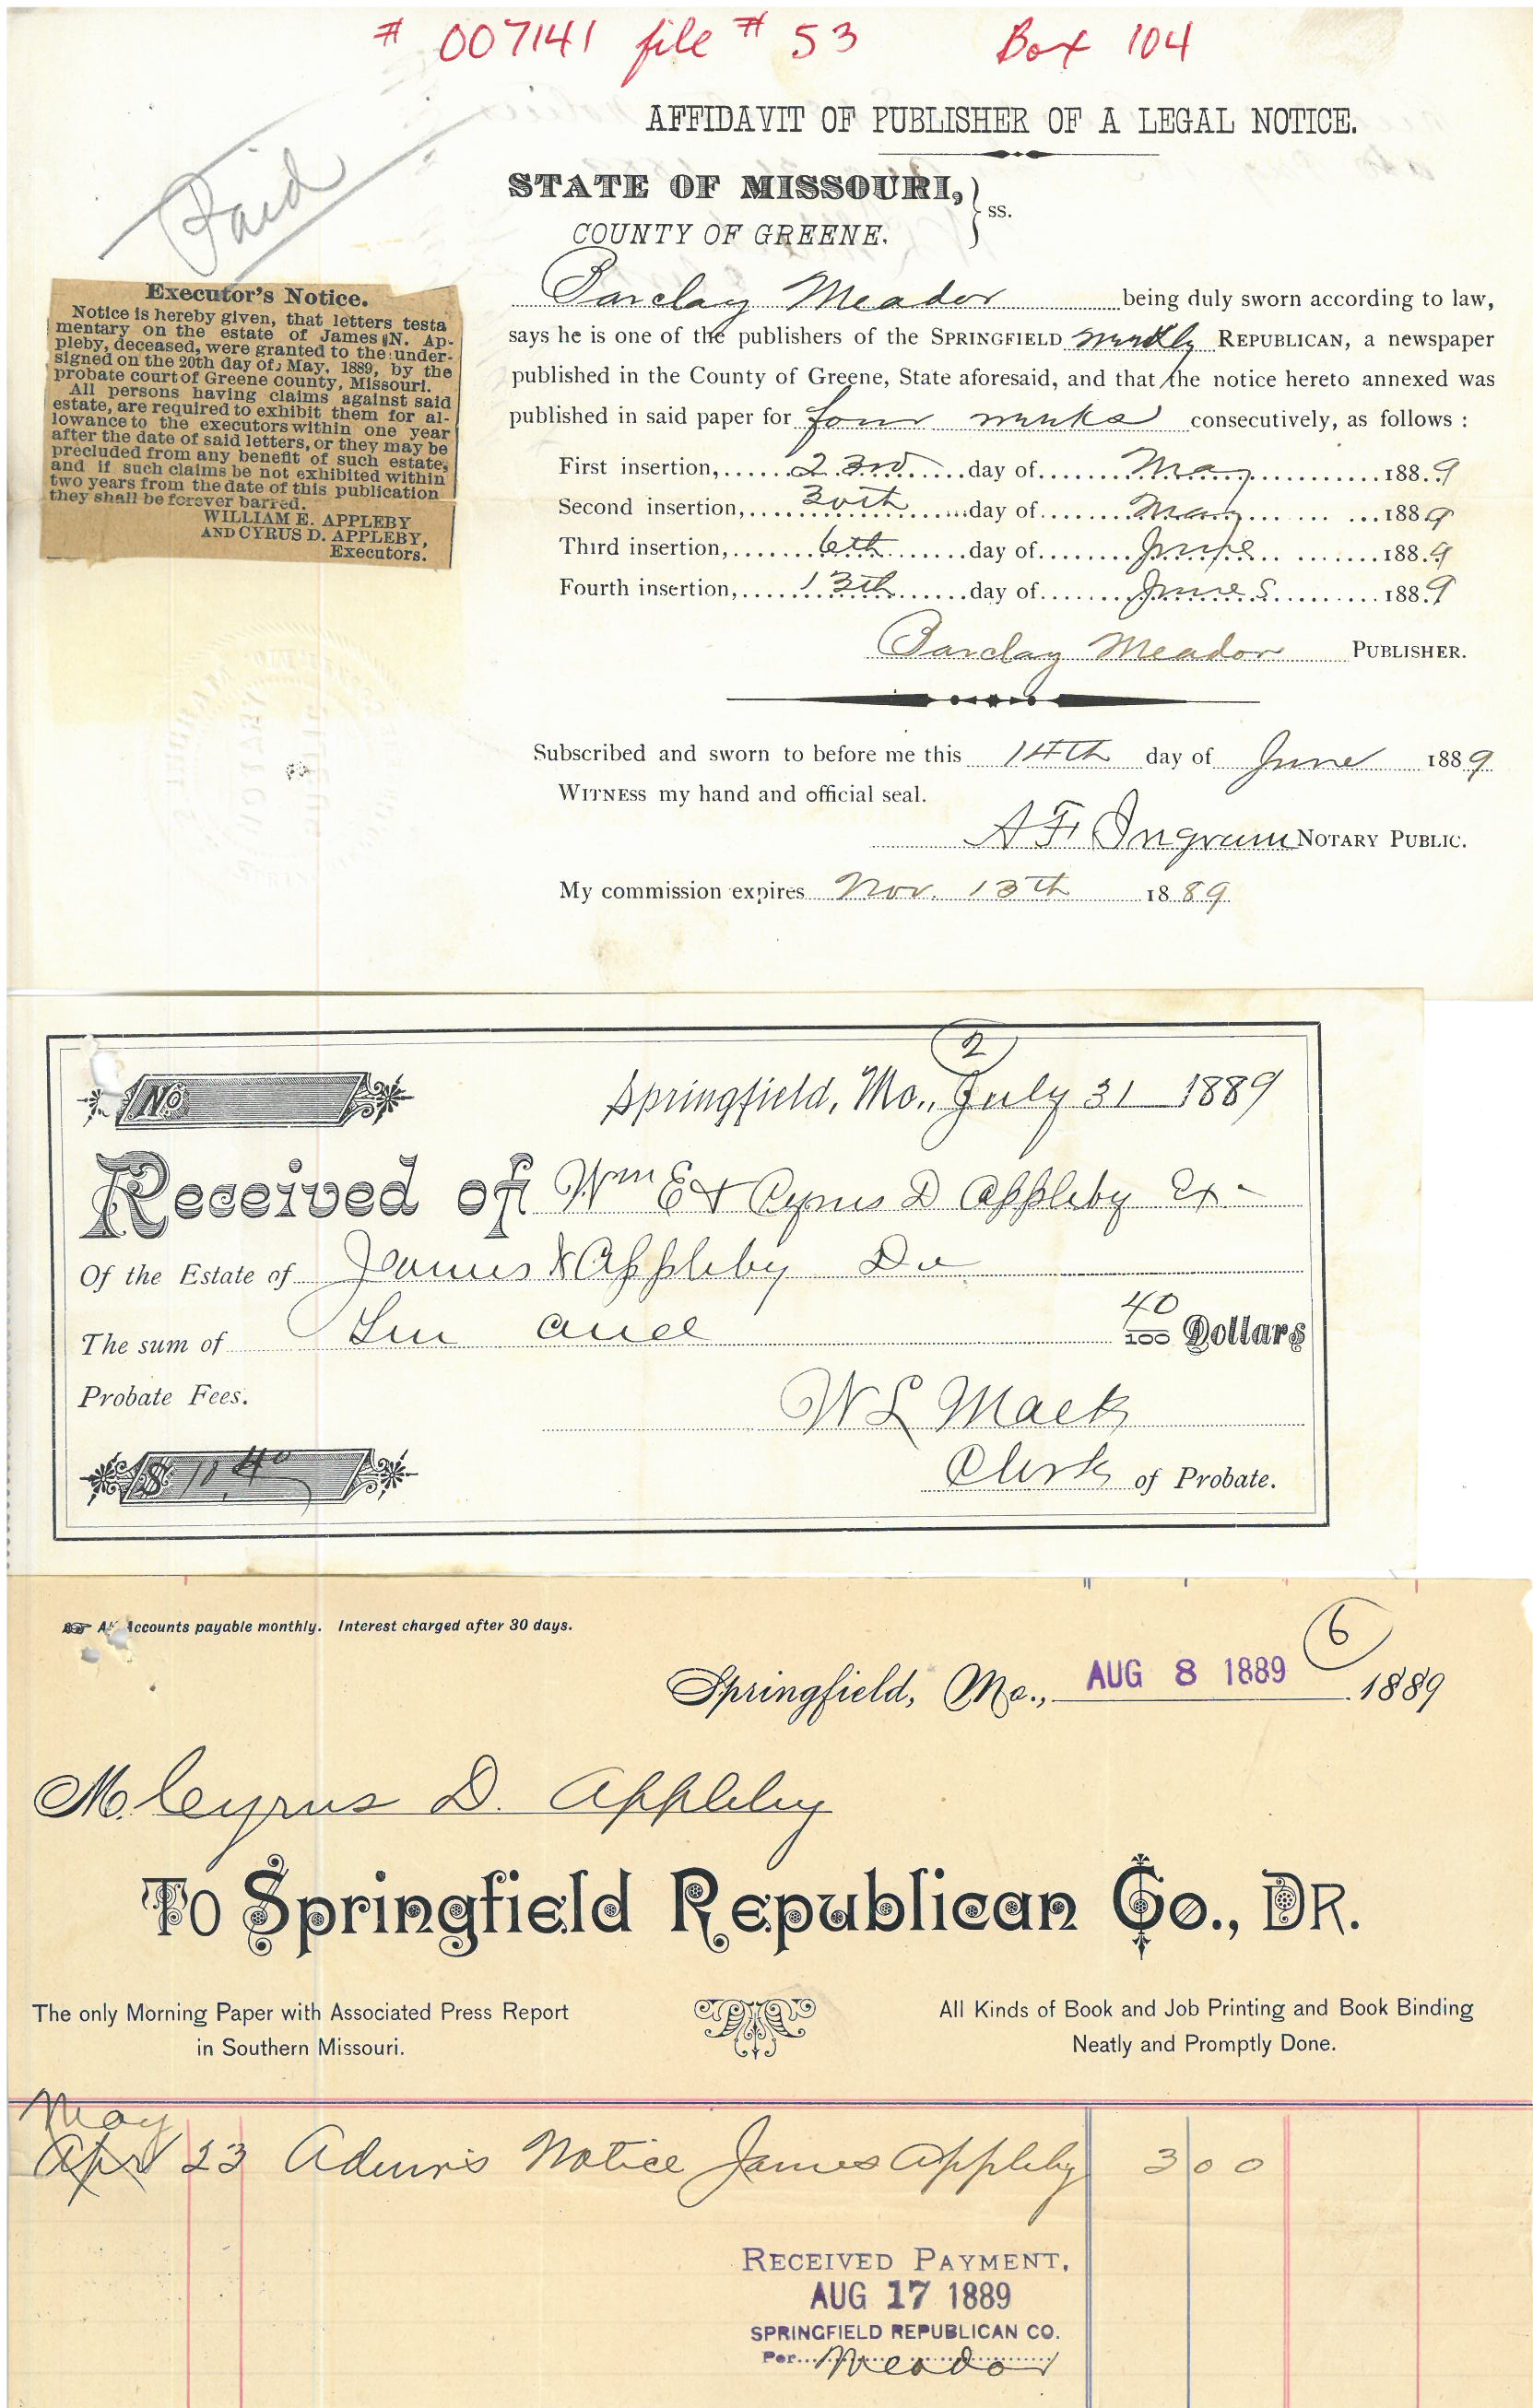 # 007141 file # 53 Box 104
Paid
AFFIDAVIT OF PUBLISHER OF A LEGAL NOTICE.
STATE OF MISSOURI, } ss.
COUNTY OF GREENE.
Executor's Notice.
Notice is hereby given, that letters testa
mentary on the estate of James N. Ap-
pleby, deceased, were granted to the under-
signed on the 20th day of May, 1889, by the
probate court of Greene county, Missouri.
All persons having claims against said
estate, are required to exhibit them for al-
lowance to the executors within one year
after the date of said letters, or they may be
precluded from any benefit of such estate,
and if such claims be not exhibited within
two years from the date of this publication
they shall be forever barred.
WILLIAM E. APPLEBY
AND CYRUS D. APPLEBY,
Executors.
Barclay Meador being duly sworn according to law,
says he is one of the publishers of the SPRINGFIELD Weekly REPUBLICAN, a newspaper
published in the County of Greene, State aforesaid, and that the notice hereto annexed was
published in said paper for four weeks consecutively, as follows :
First insertion, 23rd day of May 1889
Second insertion, 30th day of May 1889
Third insertion, 6th day of June 1889
Fourth insertion, 13th day of June 1889
Barclay Meador PUBLISHER.
Subscribed and sworn to before me this 14th day of June 1889
WITNESS my hand and official seal.
A F Ingram NOTARY PUBLIC.
My commission expires Nov. 13th 1889
2
No
Springfield, Mo., July 31 1889
Received of Wm E & Cyrus D Appleby Ex-
Of the Estate of James N Appleby
The sum of and 40/100 Dollars
Probate Fees.
W L Mack
$ 10 40
Clerk of Probate.
All Accounts payable monthly. Interest charged after 30 days.
6
Springfield, Mo., AUG 8 1889 1889
M. Cyrus D. Appleby
To Springfield Republican Co., DR.
The only Morning Paper with Associated Press Report
in Southern Missouri.
All Kinds of Book and Job Printing and Book Binding
Neatly and Promptly Done.
May
Apr 23 Admrs Notice James Appleby 3 00
RECEIVED PAYMENT,
AUG 17 1889
SPRINGFIELD REPUBLICAN CO.
Per Meador